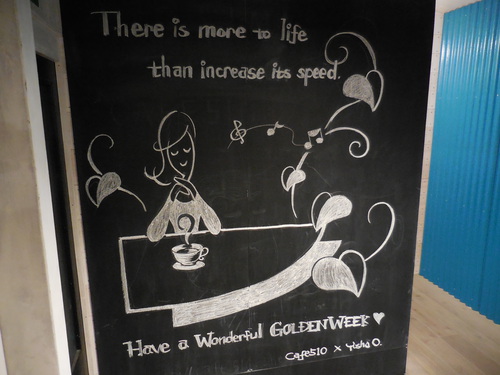 There is more to life
than increase its speed.
Have a Wonderful GOLDENWEEK
Cafe510 x yisho O.